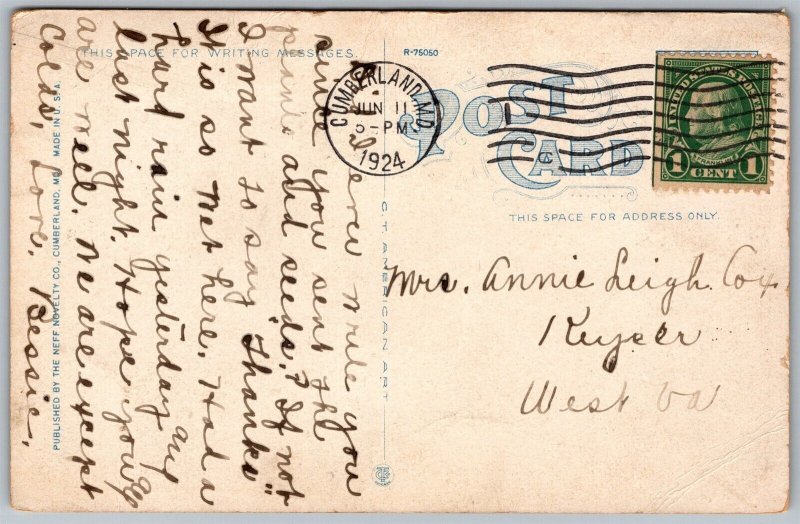 THIS SPACE FOR WRITING MESSAGES.
R-75050
POST
CARD
THIS SPACE FOR ADDRESS ONLY.
CUMBERLAND, MD.
JUN 11
5-PM
1924
UNITED STATES POSTAGE
FRANKLIN
1 CENT 1
Mrs. Annie Leigh Cox
Keyser
West Va
Did I ever write you
since you sent the
plants and seeds? If not
I want to say "Thanks"
It is so wet here. Had a
hard rain yesterday and
last night. Hope you all
are well. We are except
Colds, Love, Bessie.
C.T. AMERICAN ART
PUBLISHED BY THE NEFF NOVELTY CO., CUMBERLAND, MD. MADE IN U.S.A.